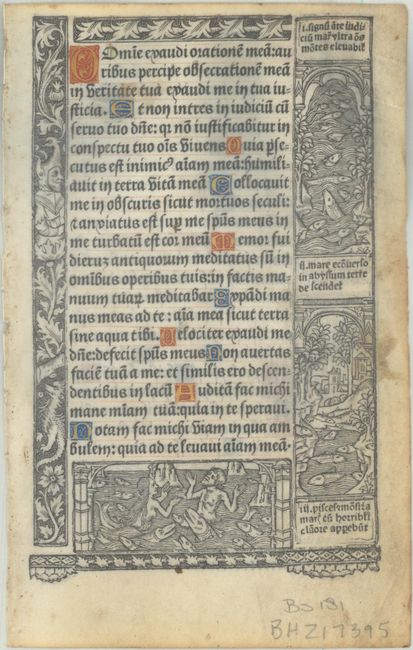 Domĩe exaudi orationẽ meã: au
ribus percipe obsecrationẽ meã
in veritate tua exaudi me in tua iu-
sticia. Et non intres in iudiciũ cũ
servo tuo dñe: qꝛ nõ iustificabitur in
conspectu tuo oĩs vivens Quia ꝑse-
cutus est inimicꝰ aĩam meã: humili-
avit in terra vitã meã Collocavit
me in obscuris sicut mortuos seculi:
⁊ anxiatus est suꝑ me spũs meus in
me turbatũ est cor meũ Memor fui
dieruꝫ antiquorum meditatus sũ in
omĩbus operibus tuis: in factis ma-
nuum tuaꝝ meditabar. Expãdi ma-
nus meas ad te: aĩa mea sicut terra
sine aqua tibi. Velociter exaudi me
dñe: defecit spũs meus Non avertas
faciẽ tuã a me: et similis ero descen-
dentibus in lacũ Auditã fac michi
mane mĩam tuã: quia in te speravi.
Notam fac michi viam in qua am
bulem: quia ad te levavi aĩam meã.
i. signũ ãte iudi
ciũ mar vltra õs
mõtes elevabit
ii. mare ecõverso
in abyssum terre
descẽdet
iii. pisces ⁊ mõstra
maris cũ horribili
clãore apꝑebũt
BS 181
BHZ17395